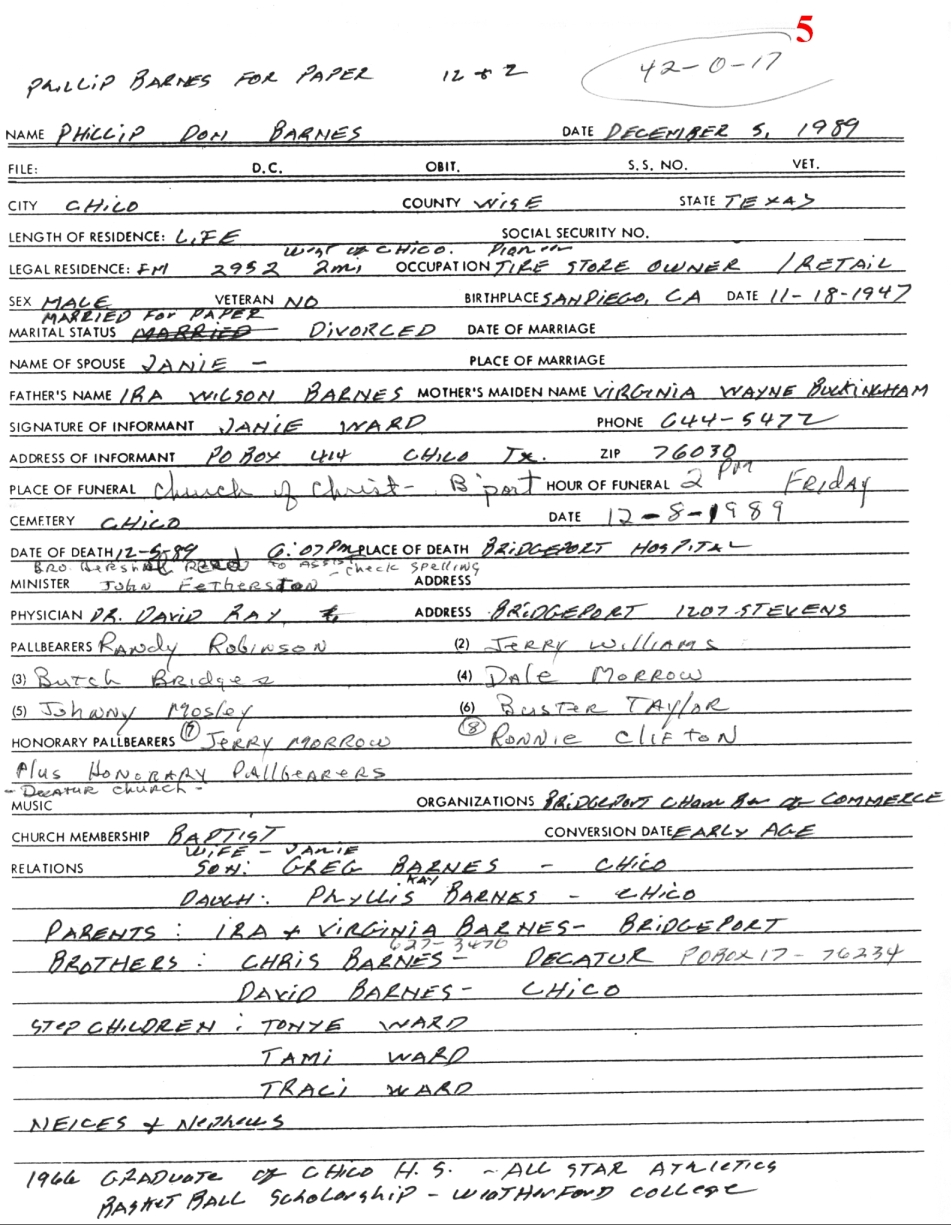 5
PHILLIP BARNES FOR PAPER 12 & 2 42-0-17
NAME PHILLIP DON BARNES DATE DECEMBER 5, 1989
FILE: D.C. OBIT. S.S. NO. VET.
CITY CHICO COUNTY WISE STATE TEXAS
LENGTH OF RESIDENCE: LIFE SOCIAL SECURITY NO.
West of CHICO.
LEGAL RESIDENCE: FM 2952 2mi OCCUPATION TIRE STORE OWNER / RETAIL
SEX MALE VETERAN NO BIRTHPLACE SAN DIEGO, CA DATE 11-18-1947
MARRIED FOR PAPER
MARITAL STATUS MARRIED DIVORCED DATE OF MARRIAGE
NAME OF SPOUSE JANIE - PLACE OF MARRIAGE
FATHER'S NAME IRA WILSON BARNES MOTHER'S MAIDEN NAME VIRGINIA WAYNE BUCKINGHAM
SIGNATURE OF INFORMANT JANIE WARD PHONE 644-5472
ADDRESS OF INFORMANT PO BOX 414 CHICO TX. ZIP 76030
PLACE OF FUNERAL Church of Christ - B'port HOUR OF FUNERAL 2 PM FRIDAY
CEMETERY CHICO DATE 12-8-1989
DATE OF DEATH 12-5-89 6:07 PM PLACE OF DEATH BRIDGEPORT HOSPITAL
BRO. HERSHAL REED TO ASSIST - check spelling
MINISTER John Fetherston ADDRESS
PHYSICIAN DR. DAVID RAY ADDRESS BRIDGEPORT 1207 STEVENS
PALLBEARERS RANDY ROBINSON (2) JERRY WILLIAMS
(3) BUTCH BRIDGES (4) DALE MORROW
(5) JOHNNY MOSLEY (6) BUSTER TAYLOR
HONORARY PALLBEARERS (7) JERRY MORROW (8) RONNIE CLIFTON
Plus HONORARY PALLBEARERS
- DECATUR CHURCH -
MUSIC ORGANIZATIONS BRIDGEPORT CHAMBER OF COMMERCE
CHURCH MEMBERSHIP BAPTIST CONVERSION DATE EARLY AGE
WIFE - JANIE
RELATIONS SON: GREG BARNES - CHICO
KAY
DAUGH: PHYLLIS BARNES - CHICO
PARENTS: IRA & VIRGINIA BARNES - BRIDGEPORT
627-3476
BROTHERS: CHRIS BARNES - DECATUR PO BOX 17 - 76234
DAVID BARNES - CHICO
STEP CHILDREN: TONYE WARD
TAMI WARD
TRACI WARD
NEICES & Nephews
1966 GRADUATE OF CHICO H.S. - ALL STAR ATHLETICS
BASKET BALL Scholarship - WEATHERFORD College